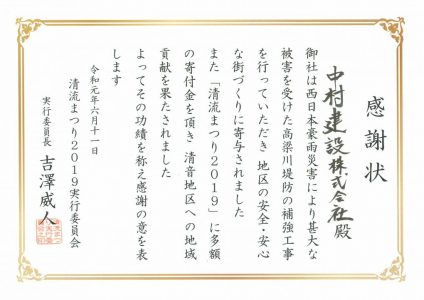 感謝状
中村建設株式会社殿
御社は西日本豪雨災害により甚大な
被害を受けた高梁川堤防の補強工事
を行っていただき 地区の安全・安心
な街づくりに寄与されました
また「清流まつり2019」に多額
の寄付金を頂き 清音地区への地域
貢献を果たされました
よってその功績を称え感謝の意を表
します
令和元年六月十一日
清流まつり2019実行委員会
実行委員長 吉澤威人